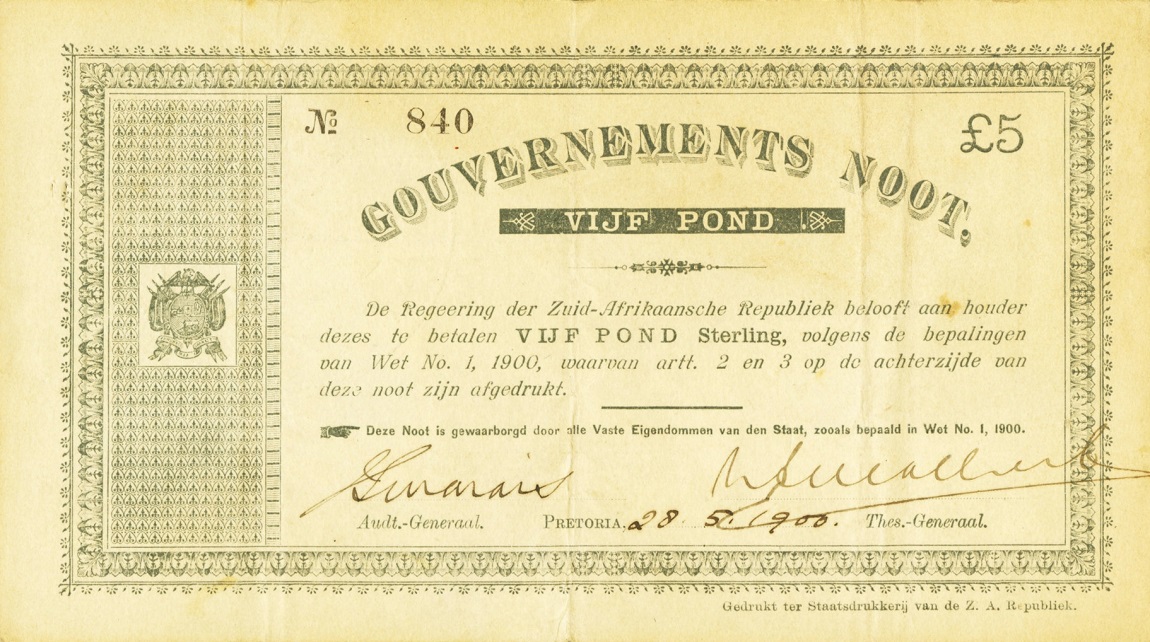 № 840
£5
GOUVERNEMENTS NOOT,
VIJF POND
De Regeering der Zuid-Afrikaansche Republiek belooft aan houder
dezes te betalen VIJF POND Sterling, volgens de bepalingen
van Wet No. 1, 1900, waarvan artt. 2 en 3 op de achterzijde van
deze noot zijn afgedrukt.
Deze Noot is gewaarborgd door alle Vaste Eigendommen van den Staat, zooals bepaald in Wet No. 1, 1900.
Audt.-Generaal. PRETORIA, 28. 5. 1900. Thes.-Generaal.
Gedrukt ter Staatsdrukkerij van de Z. A. Republiek.